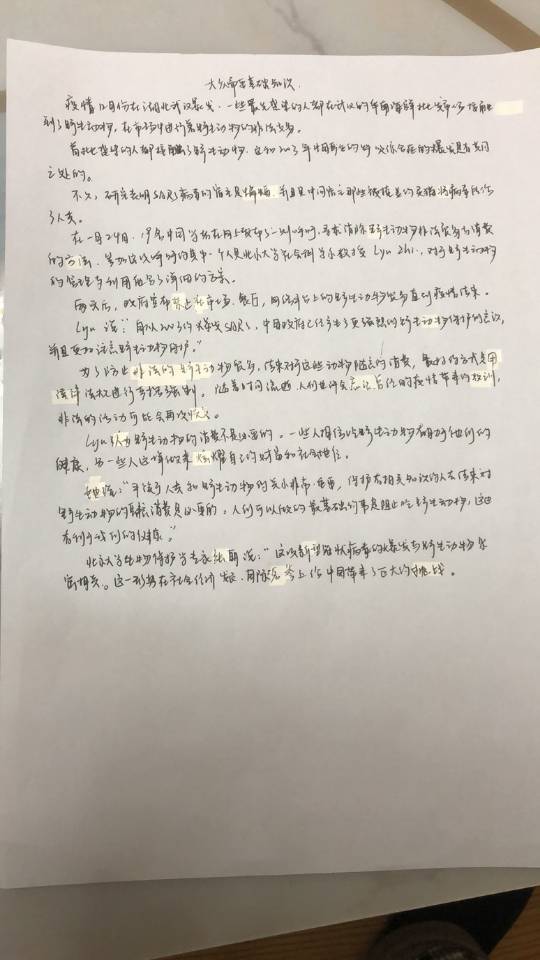 大众需要基础知识.
疫情12月份在湖北武汉暴发. 一些最先患病的人都在武汉的华南海鲜批发市场接触
到了野生动物, 在市场中进行着野生动物的非法交易。
首批患病的人都接触了野生动物. 这和2003年中国再生的
之处的。
不久, 研究表明SARS病毒的宿主是蝙蝠. 并且是中间宿主那些被
了人类。
在一月24日. 19名中国学者在网上发布了一则呼吁, 寻求消除野生动物非法贸易与消费
的方法. 参加这次呼吁的其中一个人是北京大学社会调与小教授 Lyu Zhi., 对于野生动物
的管理与利用给出了详细的方案。
两天后, 政府宣布禁止在市场, 餐厅, 网络平台上的野生动物贸易直到疫情结束。
Lyu 说: "自从2003的爆发SARS, 中国政府已经有了更强烈的野生动物保护的意识,
并且更加注意野生动物保护。"
为了防止非法的野生动物贸易, 结束对这些动物随意的消费, 最好的方式是用
法律法规进行有规强制. 随着时间流逝. 人们也许会忘记占位的疫情带来的教训,
非法的活动可能会再次
Lyu 认为野生动物的消费不是必要的. 一些人相信吃野生动物有助于他们的
健康, 另一些人这样做来炫耀自己的财富和社会地位。
她说: "平衡于人类和野生动物的关系非常重要, 保护者相关知识的人去结束对
野生动物的 消费是必要的. 人们可以做的最基础的事是阻止吃野生动物, 这也
有利于他们的健康。"
北京大学生物保护学专家张 说: "这次新型冠状病毒的爆发与野生动物紧
密相关。这一形势在社会经济发展. 国际名 上给中国带来了巨大的挑战。